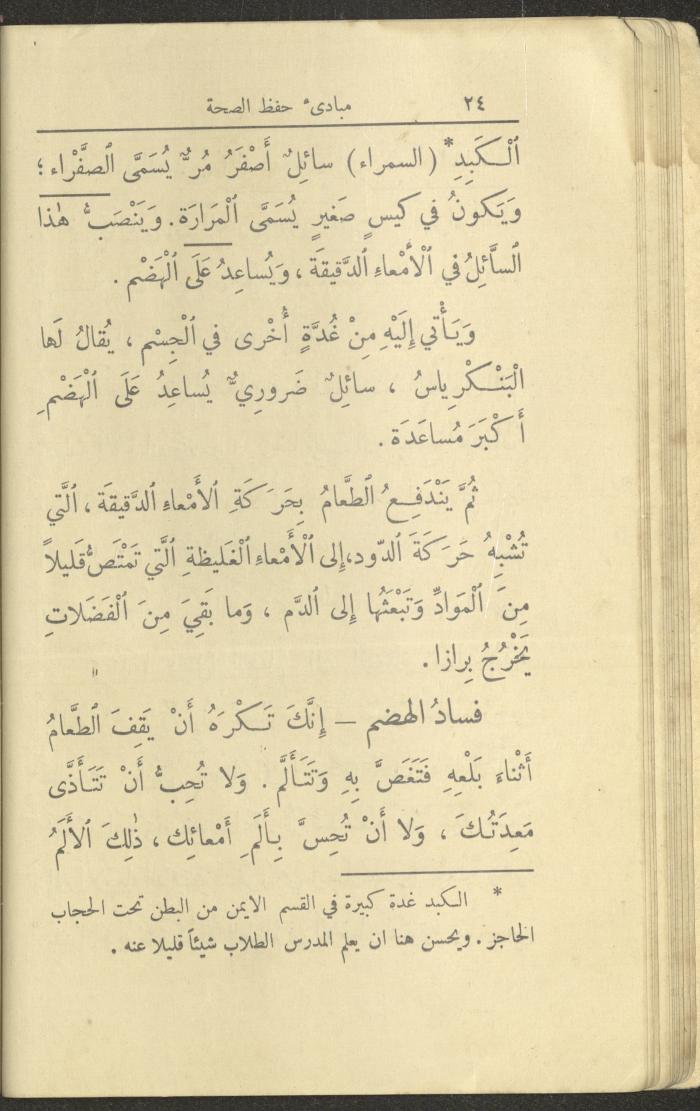 ٢٤ مبادىء حفظ الصحة
ٱلْكَبِدِ* (السمراء) سائِلٌ أَصْفَرُ مُرٌّ يُسَمَّى ٱلصَّفْراء ؛
وَيَكونُ في كيسٍ صَغيرٍ يُسَمَّى ٱلْمَرارَة. وَيَنْصَبُّ هٰذا
ٱلسَّائِلُ في ٱلْأَمْعاءِ ٱلدَّقيقَة ، وَيُساعِدُ عَلَى ٱلْهَضْم .
وَيَأْتي إِلَيْهِ مِنْ غُدَّةٍ أُخْرى في ٱلْجِسْم ، يُقالُ لَها
ٱلْبَنْكْرِياسُ ، سائِلٌ ضَرورِيٌّ يُساعِدُ عَلَى ٱلْهَضْمِ
أَكْبَرَ مُساعَدَة .
ثُمَّ يَنْدَفِعُ ٱلطَّعامُ بِحَرَكَةِ ٱلأَمْعاءِ ٱلدَّقيقَة ، ٱلَّتي
تُشْبِهُ حَرَكَةَ ٱلدّود، إِلى ٱلْأَمْعاءِ ٱلْغَليظةِ ٱلَّتي تَمْتَصُّ قَليلاً
مِنَ ٱلْمَوادِّ وَتَبْعَثُها إِلى ٱلدَّم ، وَما بَقِيَ مِنَ ٱلْفَضَلاتِ
يَخْرُجُ بِرازا .
فسادُ الهضم — إِنَّكَ تَكْرَهُ أَنْ يَقِفَ ٱلطَّعامُ
أَثْناءَ بَلْعِهِ فَتَغَصَّ بِهِ وَتَتَأَلَّم . وَلا تُحِبُّ أَنْ تَتَأَذَّى
مَعِدَتُكَ ، وَلا أَنْ تُحِسَّ بِأَلَمِ أَمْعائِك ، ذٰلِكَ ٱلأَلَمُ
* الكبد غدة كبيرة في القسم الايمن من البطن تحت الحجاب
الحاجز . ويحسن هنا ان يعلم المدرس الطلاب شيئاً قليلا عنه .